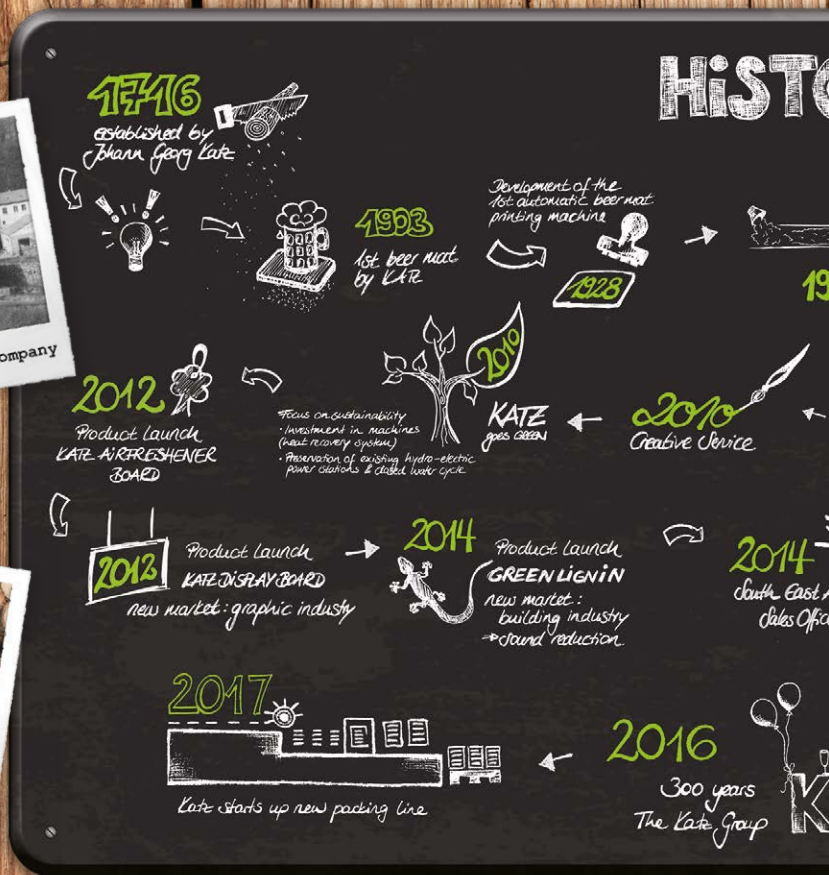 HiSTO
1716
established by
Johann Georg Katz
1903
1st beer mat
by KATZ
Development of the
1st automatic beer mat
printing machine
1928
19
ompany
2012
Product Launch
KATZ AiRFRESHENER
BOARD
2010
Focus on sustainability
• Investment in machines
(heat recovery system)
• Preservation of existing hydro-electric
power stations & closed water cycle
KATZ
goes GREEN
2010
Creative Service
2012
Product Launch
KATZ DiSPLAY BOARD
new market: graphic industy
2014
Product Launch
GREEN LiGNiN
new market:
building industry
→ sound reduction.
2014
South East A
Sales Offic
2017
Katz starts up new packing line
2016
300 years
The Katz Group
K